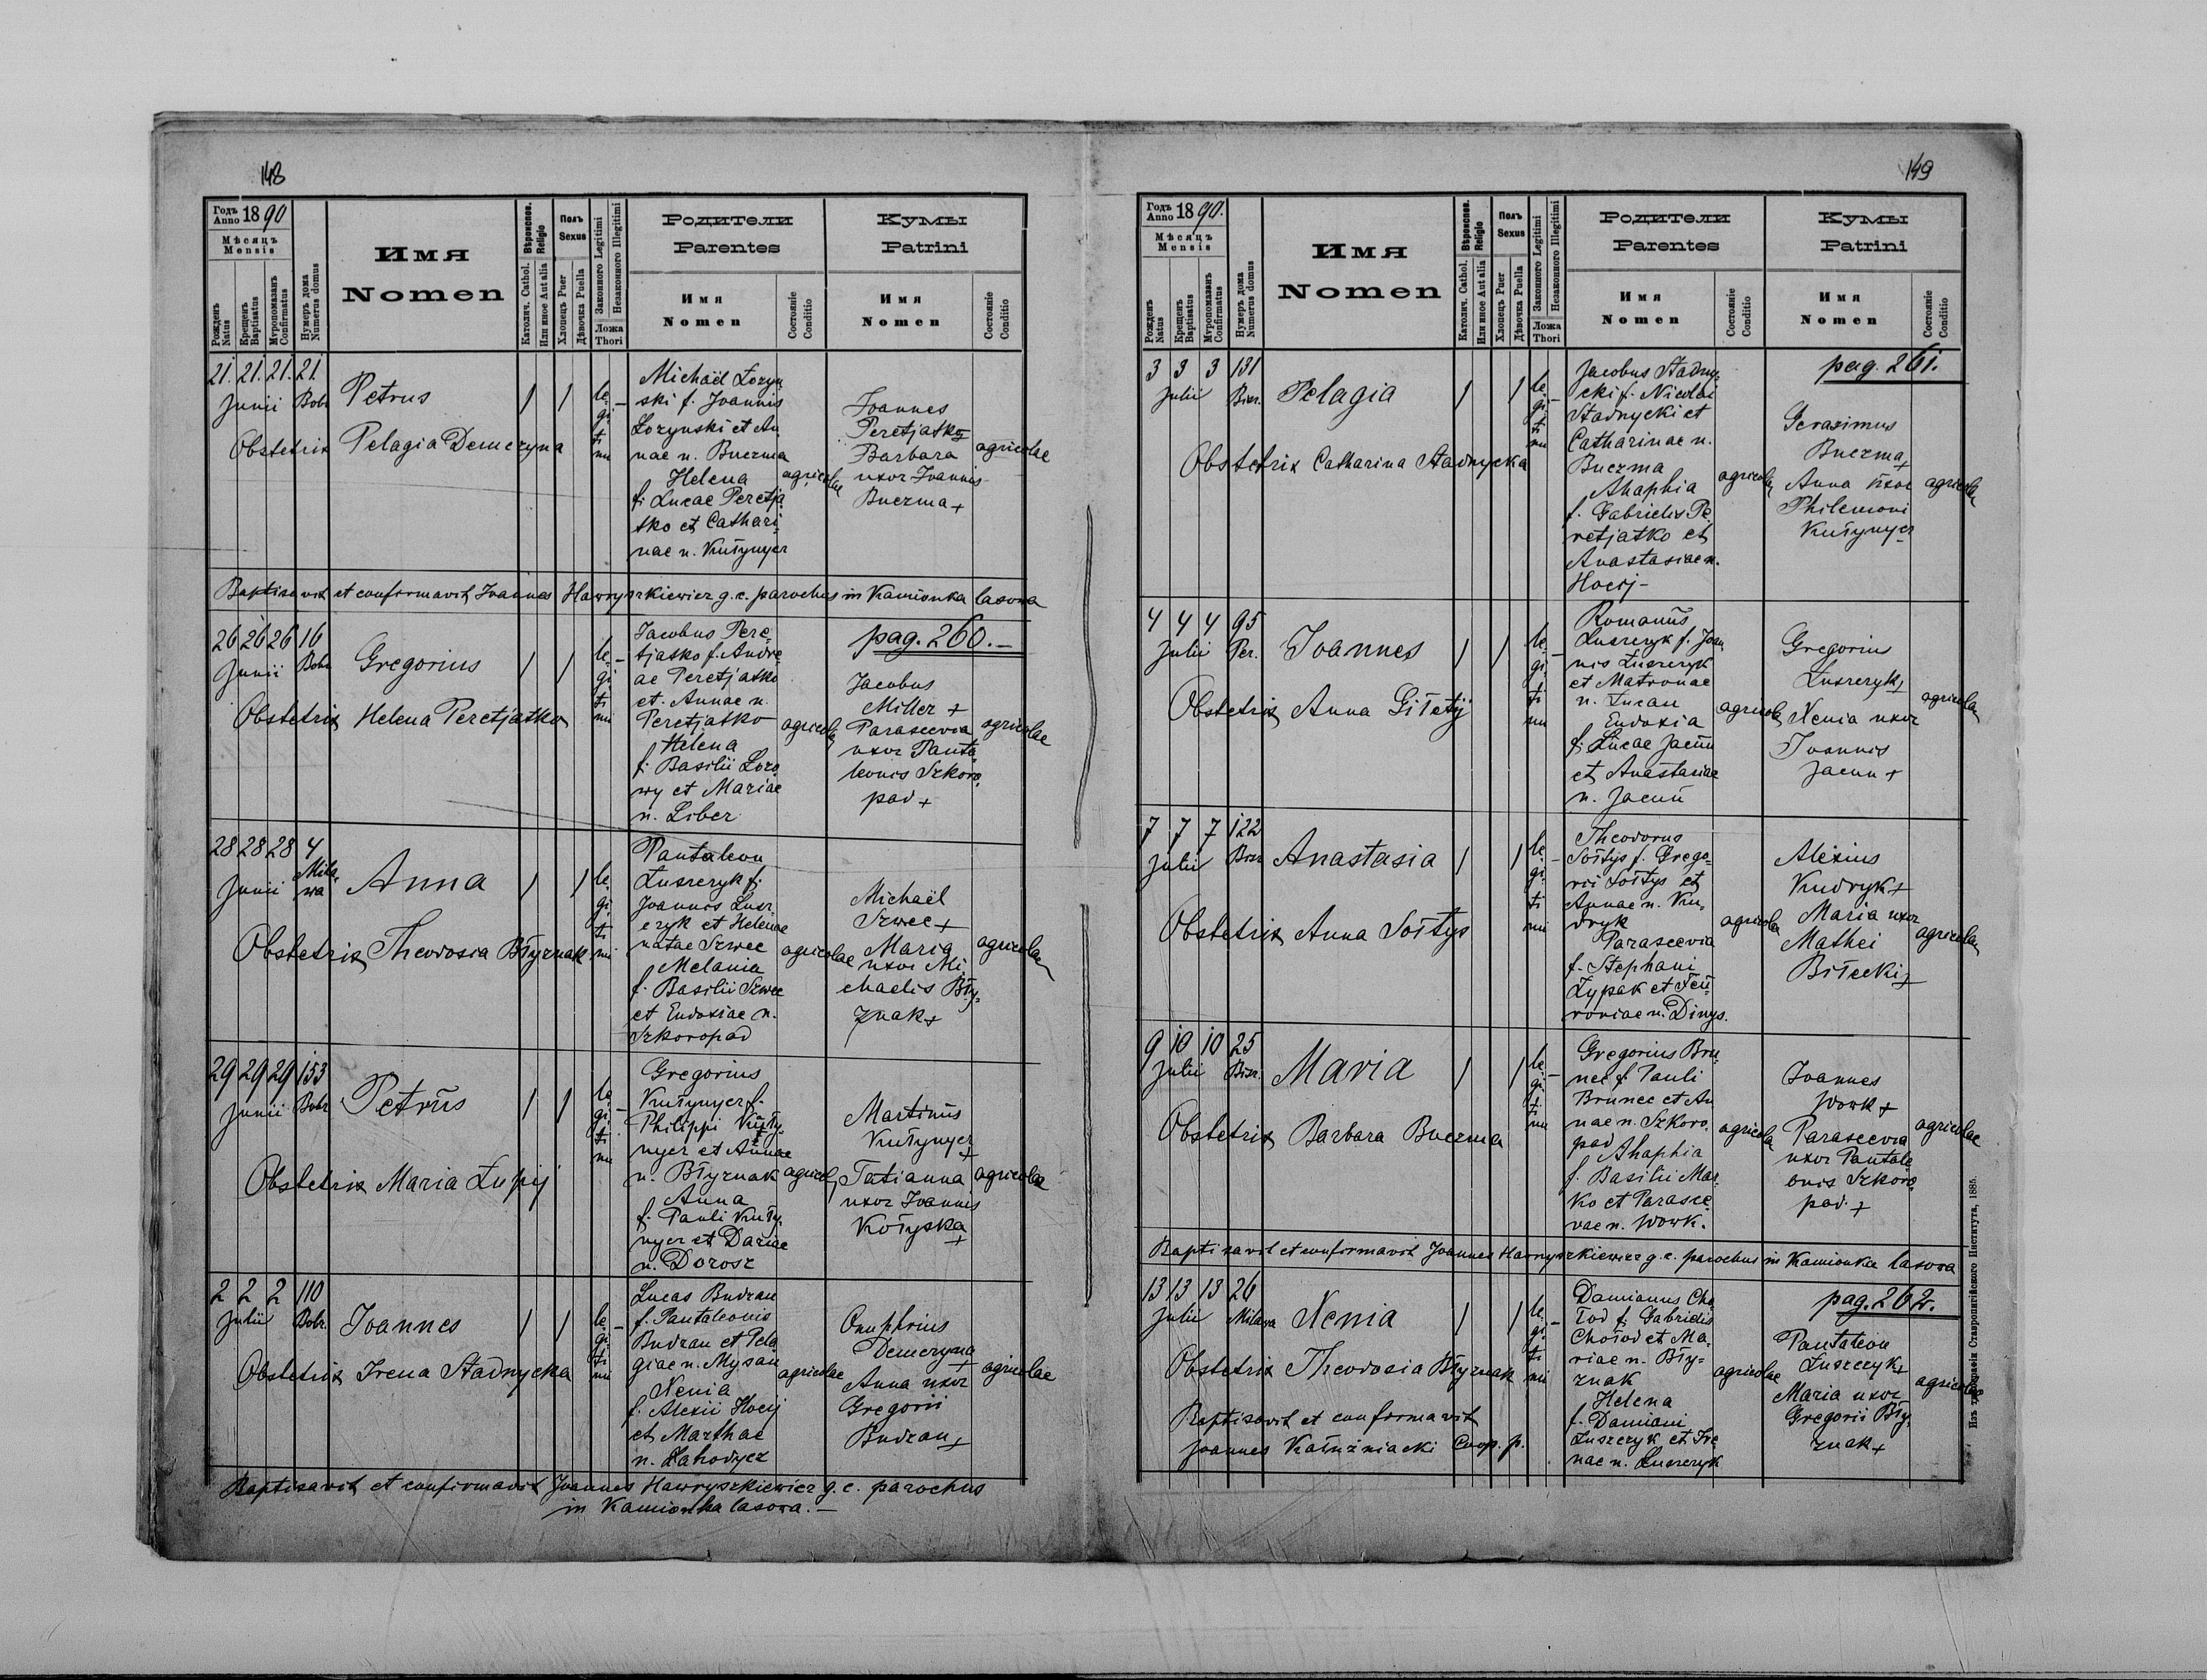 148
Годъ Anno 1890
Мѣсяцъ
Mensis
Рожденъ Natus
Крещенъ Baptisatus
Муропомазанъ Confirmatus
Нумеръ дома Numerus domus
Имя
Nomen
Вѣроиспов. Religio
Католич. Cathol.
Или иное Aut alia
Полъ
Sexus
Хлопецъ Puer
Дѣвочка Puella
Законного Legitimi
Незаконного Illegitimi
Ложа
Thori
Родители
Parentes
Имя
Nomen
Состоянiе
Conditio
Кумы
Patrini
Имя
Nomen
Состоянiе
Conditio
21. 21. 21. 21.
Junii Bobr
Petrus
Obstetrix Pelagia Demczyna
le-
gi-
ti
mi
Michaël Łozyn
ski f. Joannis
Łozynski et An
nae n. Buczma
Helena
f. Lucae Peretja
tko et Cathari
nae n. Kułynyer
agricolae
Joannes
Peretjatko
Barbara
uxor Joannis
Buczma +
agricolae
Baptisavit et confirmavit Joannes Hawryszkiewicz g. c. parochus in Kamionka lasowa
26 26 26 16
Junii Bobr
Gregorius
Obstetrix Helena Peretjatko
le-
gi
ti
mi
Jacobus Pere
tjatko f. Andre
ae Peretjatko
et Annae n.
Peretjatko
Helena
f. Basilii Łozo
wy et Mariae
n. Liber
agricolae
pag. 260.-
Jacobus
Miller +
Parascevia
uxor Panta
leonis Szkoro
pad +
agricolae
28 28 28 4
Junii Mila
wa
Anna
Obstetrix Theodosia Błyznak
le-
gi
ti
mi
Pantaleon
Łuszczyk f.
Joannis Łusz
czyk et Helenae
natae Szwec
Melania
f. Basilii Szwec
et Eudoxiae n.
Szkoropad
agricolae
Michaël
Szwec +
Maria
uxor Mi
chaelis Bły-
znak +
agricolae
29 29 29 153
Junii Bobr
Petrus
Obstetrix Maria Łupij
le
gi
ti
mi
Gregorius
Kułynyer f.
Philippi Kuły
nyer et Annae
n. Błyznak
Anna
f. Pauli Kuły
nyer et Dariae
n. Dorosz
agricol
Martinus
Kułynyer
Tatianna
uxor Joannis
Kołyska
agricolae
2 2 2 110
Julii Bobr.
Joannes
Obstetrix Irena Stadnycka
le-
gi
ti
mi
Lucas Budzan
f. Pantaleonis
Budzan et Pela
giae n. Mysan
Xenia
f. Alexii Hocij
et Marthae
n. Zahodycz
agricolae
Onuphrius
Demczyna
Anna uxor
Gregorii
Budzan +
agricolae
Baptisavit et confirmavit Joannes Hawryszkiewicz g. c. parochus
in Kamionka lasowa.-
149
Годъ Anno 1890.
Мѣсяцъ
Mensis
Рожденъ Natus
Крещенъ Baptisatus
Муропомазанъ Confirmatus
Нумеръ дома Numerus domus
Имя
Nomen
Вѣроиспов. Religio
Католич. Cathol.
Или иное Aut alia
Полъ
Sexus
Хлопецъ Puer
Дѣвочка Puella
Законного Legitimi
Незаконного Illegitimi
Ложа
Thori
Родители
Parentes
Имя
Nomen
Состоянiе
Conditio
Кумы
Patrini
Имя
Nomen
Состоянiе
Conditio
3 3 3 131
Julii
Pelagia
Obstetrix Catharina Stadnycka
le-
gi-
ti
mi
Jacobus Stadny
cki f. Nicolai
Stadnycki et
Catharinae n.
Buczma
Ahaphia
f. Gabrielis Pe
retjatko et
Anastasiae n.
Hocij-
agricolae
pag. 261.
Gerasimus
Buczma +
Anna uxor
Philemoni
Kułynyer
agricolae
4 4 4 95
Julii Per.
Joannes
Obstetrix Anna Giłetij
le-
gi
ti
mi
Romanus
Łuszczyk f. Joan
nis Łuszczyk
et Matronae
n. Łucan
Eudoxia
f. Lucae Jacuń
et Anastasiae
n. Jacuń
agricolae
Gregorius
Łuszczyk
Xenia uxor
Joannis
Jacun +
agricolae
7 7 7 122
Julii
Anastasia
Obstetrix Anna Sołtys
le-
gi
ti
mi
Theodorus
Sołtys f. Grego-
rii Sołtys et
Annae n. Ku-
dryk
Parascevia
f. Stephani
Łypak et Feu-
roniae n. Dinys.
agricolae
Alexius
Kudryk +
Maria uxor
Mathei
Biłecki +
agricolae
9 10 10 25
Julii
Maria
Obstetrix Barbara Buczma
le-
gi-
ti
mi
Gregorius Bru
nec f. Pauli
Brunec et An
nae n. Szkoro
pad
Ahaphia
f. Basilii Mas
ko et Parasce
vae n. Wowk.
agricolae
Joannes
Wowk +
Parascevia
uxor Pantale
onis Szkoro
pad. +
agricolae
Baptisavit et confirmavit Joannes Hawryszkiewicz g. c. parochus in Kamionka lasowa
13 13 13 26
Julii Milawa
Xenia
Obstetrix Theodosia Błyznak
Baptisavit et confirmavit
Joannes Kałużniacki Coop. p.
le-
gi
ti
mi
Damianus Cho
łod f. Gabrielis
Chołod et Ma-
riae n. Bły-
znak
Helena
f. Damiani
Łuszczyk et Ire
nae n. Łuszczyk
agricolae
pag. 262.
Pantaleon
Łuszczyk +
Maria uxor
Gregorii Bły
znak +
agricolae
Изъ типографiи Ставропигiйского Института, 1885.